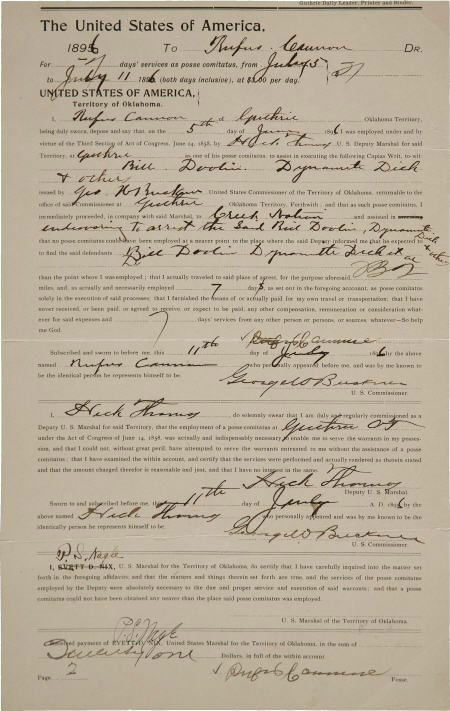 Guthrie Daily Leader, Printer and Binder.
The United States of America,
1896 To Rufus Cannon DR.
For days' services as posse comitatus, from July 5
to July 11 1896 (both days inclusive), at $3.00 per day.
UNITED STATES OF AMERICA,
Territory of Oklahoma.
I, Rufus Cannon of Guthrie Oklahoma Territory,
being duly sworn, depose and say that on the 5th day of 1896 I was employed under and by
virtue of the Third Section of Act of Congress, June 14, 1858, by Heck Thomas U. S. Deputy Marshal for said
Territory, at Guthrie as one of his posse comitatus, to assist in executing the following Capias Writ, to-wit
Bill Doolin Dynamite Dick
& others
issued by Geo W Buckner United States Commissioner of the Territory of Oklahoma, returnable to the
office of said Commissioner at Guthrie Oklahoma Territory, Forthwith; and that as such posse comitatus, I
immediately proceeded, in company with said Marshal, to Creek Nation and assisted in
endeavoring to arrest the said Bill Doolin, Dynamite Dick & others
that no posse comitatus could have been employed at nearer point to the place where the said Deputy informed me that he expected to
to find the said defendants Bill Doolin Dynamite Dick et al
than the point where I was employed; that I actually traveled to said place of arrest, for the purpose aforesaid
miles, and as actually and necessarily employed 7 days as set out in the foregoing account, as posse comitatus
solely in the execution of said processes; that I furnished the means of or actually paid for my own travel or transportation; that I have
never received, or been paid, or agreed to receive, or expect to be paid, any other compensation, remuneration or consideration what-
ever for said expenses and 7 days' services from any other person or persons, or sources, whatever—So help
me God.
Rufus Cannon
Subscribed and sworn to before me, this 11th day of July 1896 by the above
named Rufus Cannon who personally appeared before me, and was by me known to
be the identical person he represents himself to be.
George W Buckner
U. S. Commissioner.
I, Heck Thomas, do solemnly swear that I am duly and regularly commissioned as a
Deputy U. S. Marshal for said Territory, that the employment of a posse comitatus at Guthrie O T
under the Act of Congress of June 14, 1858, was actually and indispensably necessary to enable me to serve the warrants in my posses-
sion, and that I could not, without great peril, have attempted to serve the warrants intrusted to me without the assistance of a posse
comitatus; that I have examined the within account, and certify that the services were performed and actually rendered as therein stated
and that the amount charged therefor is reasonable and just, and that I have no interest in the same.
Heck Thomas
Deputy U. S. Marshal.
Sworn to and subscribed before me, the 11th day of July A. D. 1896 by the
above named Heck Thomas who personally appeared and was by me known to be the
identically person he represents himself to be.
George W Buckner
U. S. Commissioner.
P. S. Nagle
I, EVETT D. NIX, U. S. Marshal for the Territory of Oklahoma, do certify that I have carefully inquired into the matter set
forth in the foregoing affidavits; and that the matters and things therein set forth are true, and the services of the posse comitatus
employed by the Deputy were absolutely necessary to the due and proper service and execution of said warrants; and that a posse
comitatus could not have been obtained any nearer than the place said posse comitatus was employed.
U. S. Marshal of the Territory of Oklahoma.
P. S. Nagle
payment of EVETT D. NIX, United States Marshal for the Territory of Oklahoma, in the sum of
Twenty one Dollars, in full of the within account.
Rufus Cannon
Page 2 Posse.